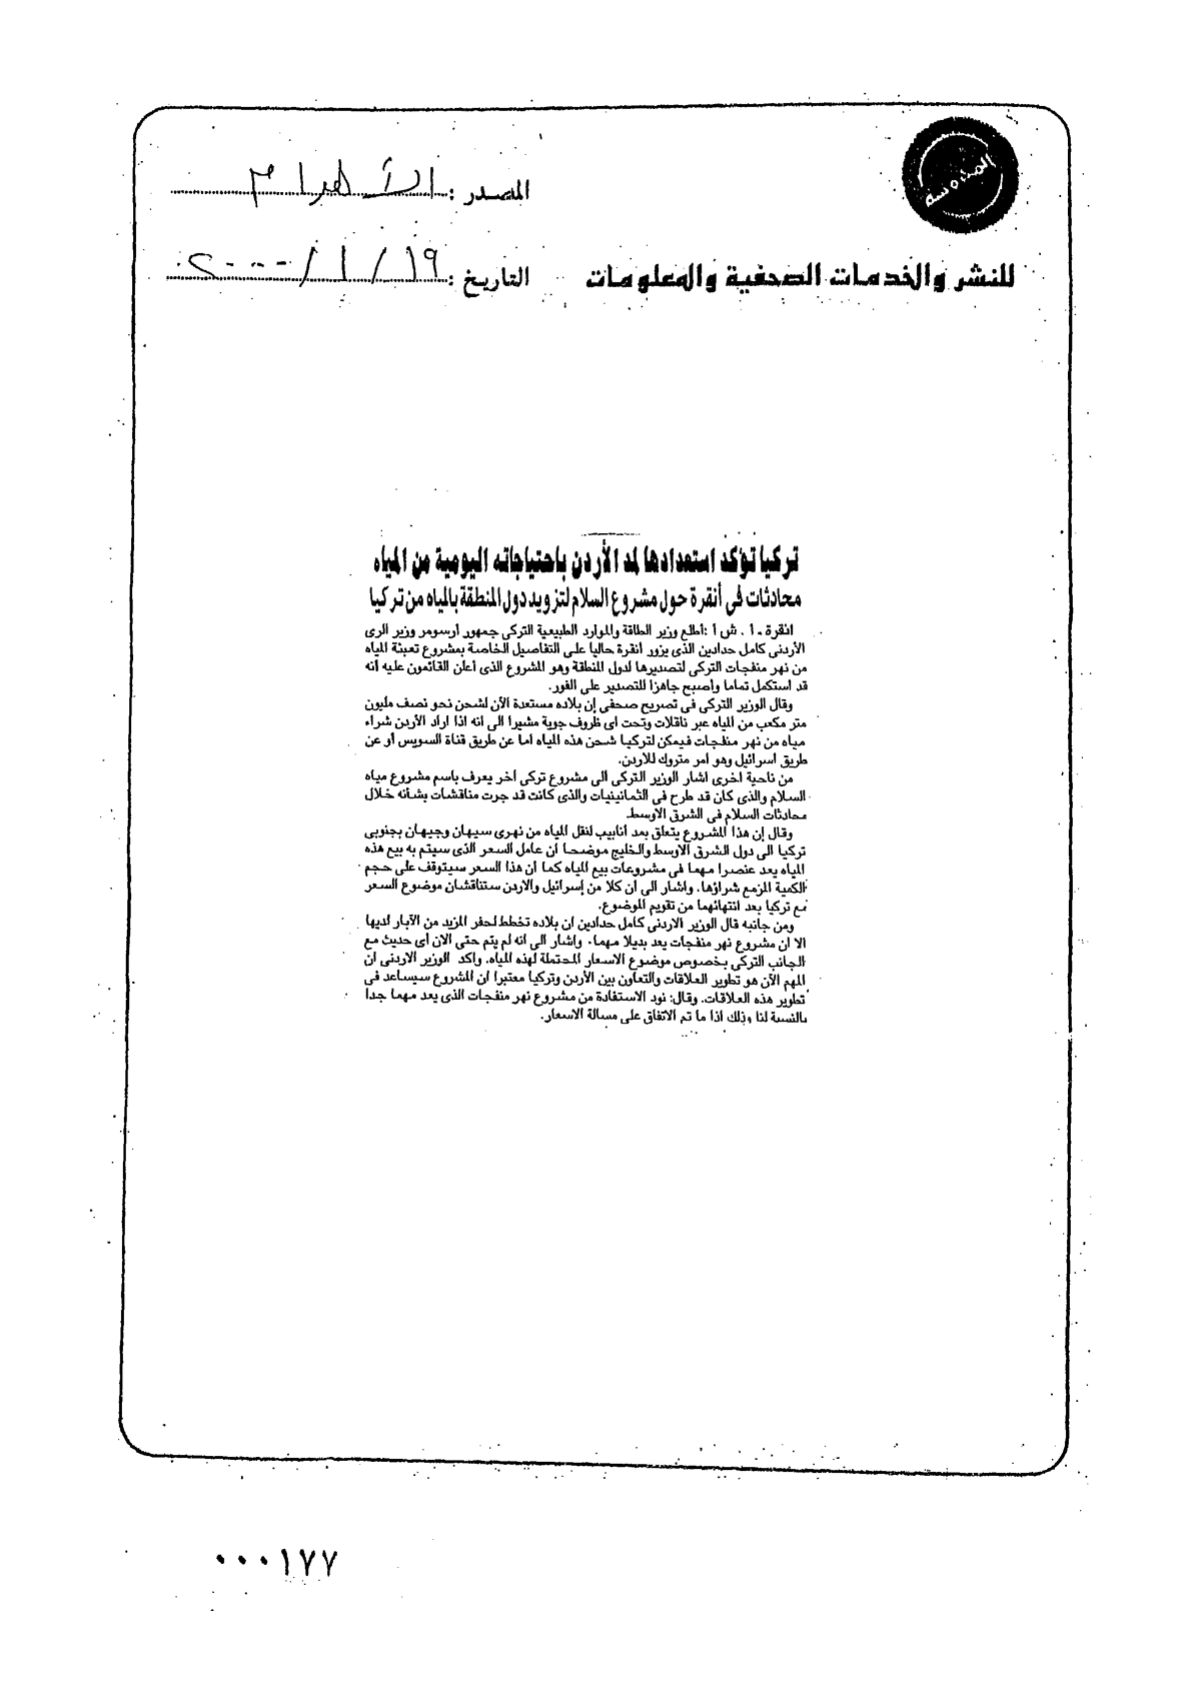 المصدر : الأهرام
للنشر والخدمات الصحفية والمعلومات
التاريخ : ١٩ / ١ / ٢٠٠٠
تركيا تؤكد استعدادها لمد الأردن باحتياجاته اليومية من المياه
محادثات فى أنقرة حول مشروع السلام لتزويد دول المنطقة بالمياه من تركيا
انقرة ـ أ . ش أ :أطلع وزير الطاقة والموارد الطبيعية التركى جمهور أرسومر وزير الرى
الأردنى كامل حدادين الذى يزور انقرة حاليا على التفاصيل الخاصة بمشروع تعبئة المياه
من نهر منفجات التركى لتصديرها لدول المنطقة وهو المشروع الذى أعلن القائمون عليه أنه
قد استكمل تماما وأصبح جاهزا للتصدير على الفور.
وقال الوزير التركى فى تصريح صحفى إن بلاده مستعدة الآن لشحن نحو نصف مليون
متر مكعب من المياه عبر ناقلات وتحت اى ظروف جوية مشيرا الى انه اذا اراد الأردن شراء
مياه من نهر منفجات فيمكن لتركيا شحن هذه المياه اما عن طريق قناة السويس أو عن
طريق اسرائيل وهو امر متروك للاردن.
من ناحية اخرى اشار الوزير التركى الى مشروع تركى آخر يعرف باسم مشروع مياه
السلام والذى كان قد طرح فى الثمانينيات والذى كانت قد جرت مناقشات بشأنه خلال
محادثات السلام فى الشرق الاوسط.
وقال إن هذا المشروع يتعلق بمد أنابيب لنقل المياه من نهرى سيهان وجيهان بجنوبى
تركيا الى دول الشرق الاوسط والخليج موضحا ان عامل السعر الذى سيتم به بيع هذه
المياه يعد عنصرا مهما فى مشروعات بيع المياه كما أن هذا السعر سيتوقف على حجم
الكمية المزمع شراؤها. واشار الى ان كلا من إسرائيل والاردن ستناقشان موضوع السعر
مع تركيا بعد انتهائهما من تقويم الموضوع.
ومن جانبه قال الوزير الاردنى كامل حدادين ان بلاده تخطط لحفر المزيد من الآبار لديها
الا ان مشروع نهر منفجات يعد بديلا مهما. واشار الى انه لم يتم حتى الان أى حديث مع
الجانب التركى بخصوص موضوع الاسعار المحتملة لهذه المياه. واكد الوزير الاردنى ان
المهم الآن هو تطوير العلاقات والتعاون بين الأردن وتركيا معتبرا ان المشروع سيساعد فى
تطوير هذه العلاقات. وقال: نود الاستفادة من مشروع نهر منفجات الذى يعد مهما جدا
بالنسبة لنا وذلك اذا ما تم الاتفاق على مسالة الاسعار.
٠٠٠١٧٧